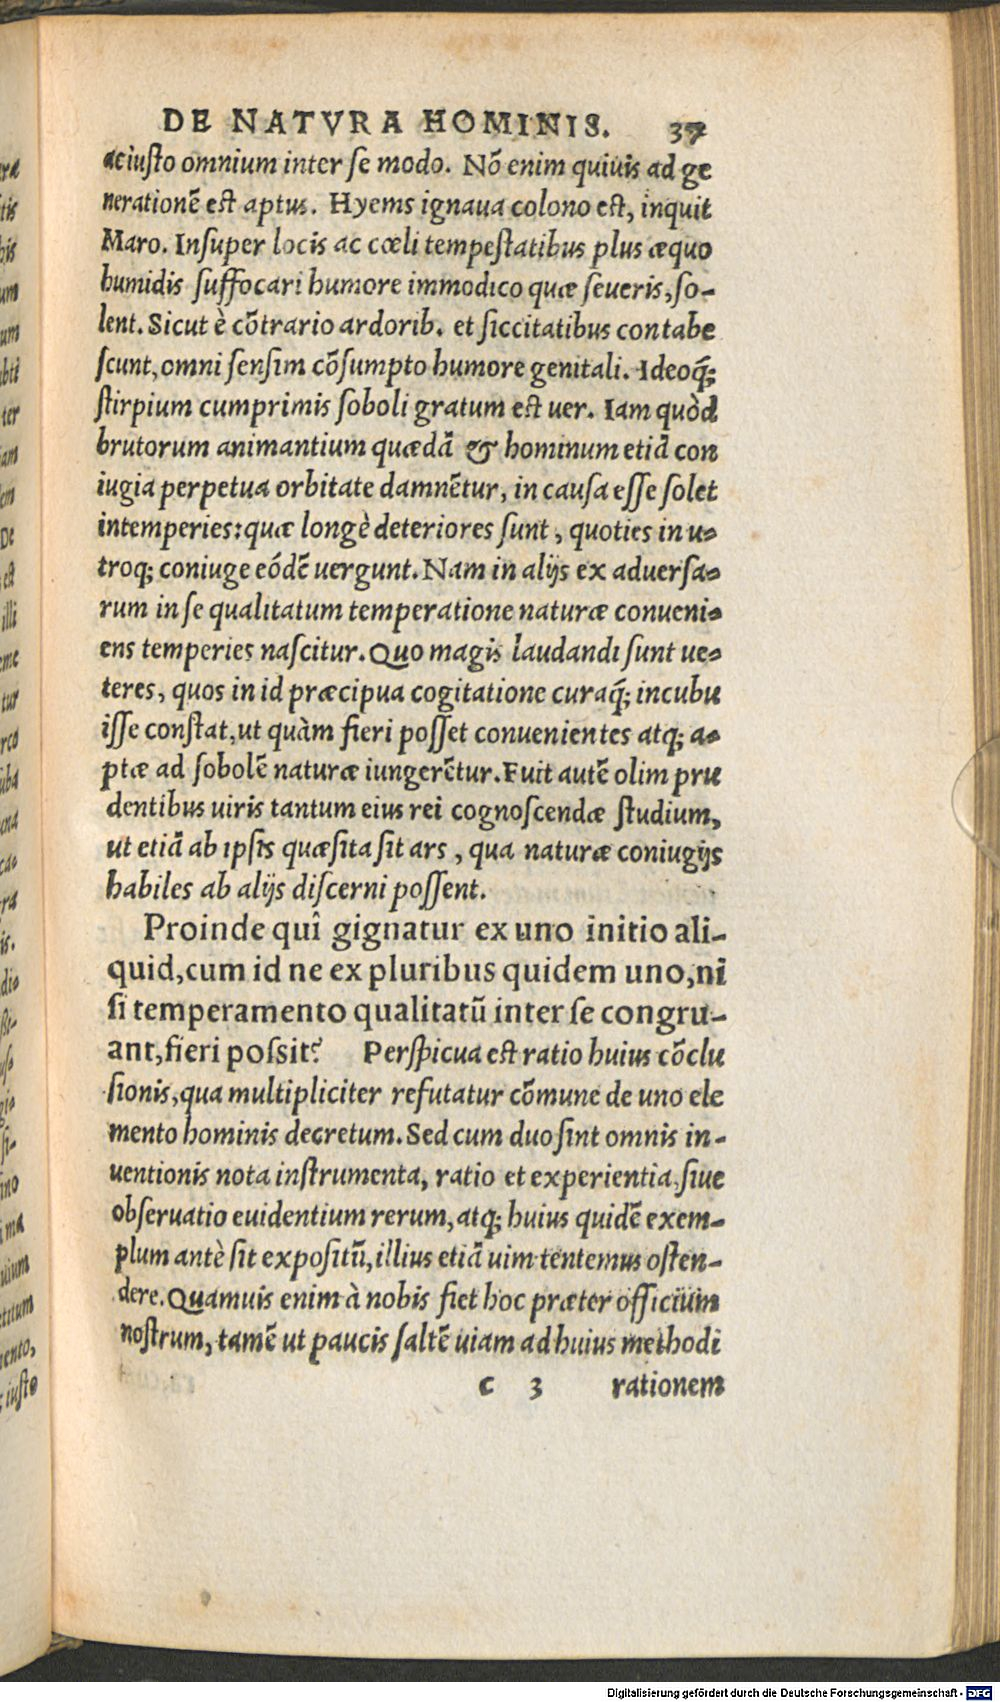 DE NATVRA HOMINIS. 37
ac iusto omnium inter se modo. Nõ enim quiuis ad ge
nerationẽ est aptus. Hyems ignaua colono est, inquit
Maro. Insuper locis ac cœli tempestatibus plus æquo
humidis suffocari humore immodico quæ seueris, so-
lent. Sicut è cõtrario ardorib. et siccitatibus contabe
scunt, omni sensim cõsumpto humore genitali. Ideoq́;
stirpium cumprimis soboli gratum est uer. Iam quòd
brutorum animantium quædã & hominum etiã con
iugia perpetua orbitate damnẽtur, in causa esse solet
intemperies: quæ longè deteriores sunt, quoties in u-
troq; coniuge eódẽ uergunt. Nam in alijs ex aduersa-
rum in se qualitatum temperatione naturæ conueni-
ens temperies nascitur. Quo magis laudandi sunt ue-
teres, quos in id præcipua cogitatione curaq́; incubu
isse constat, ut quàm fieri posset conuenientes atq; a-
ptæ ad sobolẽ naturæ iungerẽtur. Fuit autẽ olim pru
dentibus uiris tantum eius rei cognoscendæ studium,
ut etiã ab ipsis quæsita sit ars, qua naturæ coniugijs
habiles ab alijs discerni possent.
Proinde quî gignatur ex uno initio ali-
quid, cum id ne ex pluribus quidem uno, ni
si temperamento qualitatũ inter se congru-
ant, fieri possit? Perspicua est ratio huius cõclu
sionis, qua multipliciter refutatur cõmune de uno ele
mento hominis decretum. Sed cum duo sint omnis in-
uentionis nota instrumenta, ratio et experientia, siue
obseruatio euidentium rerum, atq; huius quidẽ exem-
plum antè sit expositũ, illius etiã uim tentemus osten-
dere. Quamuis enim à nobis fiet hoc præter officium
nostrum, tamẽ ut paucis saltẽ uiam ad huius methodi
c 3 rationem
Digitalisierung gefördert durch die Deutsche Forschungsgemeinschaft - DFG